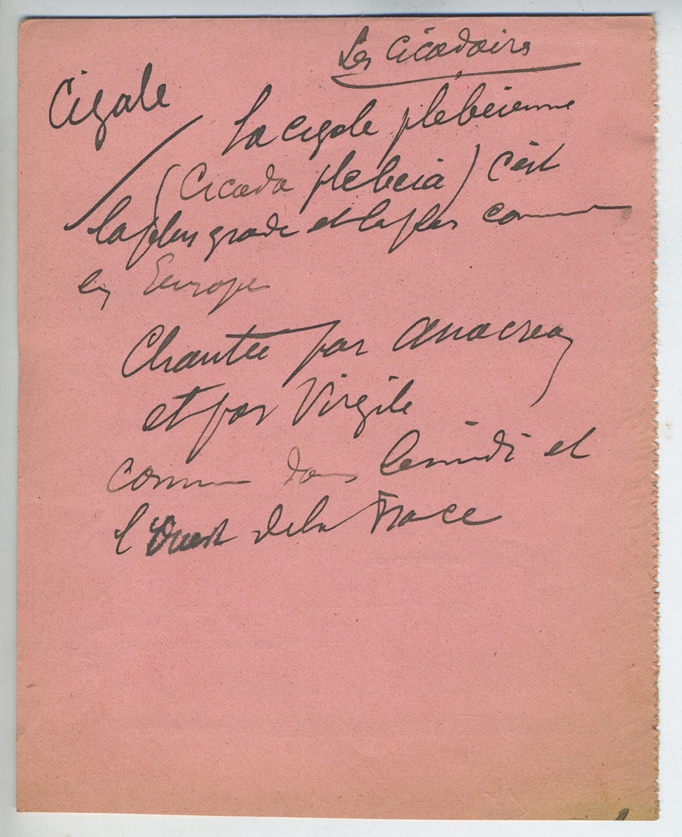 Les Cicadaires
Cigale
La cigale plébéienne
(Cicada plebeia) c'est
la plus grade et la plus commune
en Europe
Chantée par Anacreon
et par Virgile
commune dans le midi et
l'Ouest de la France